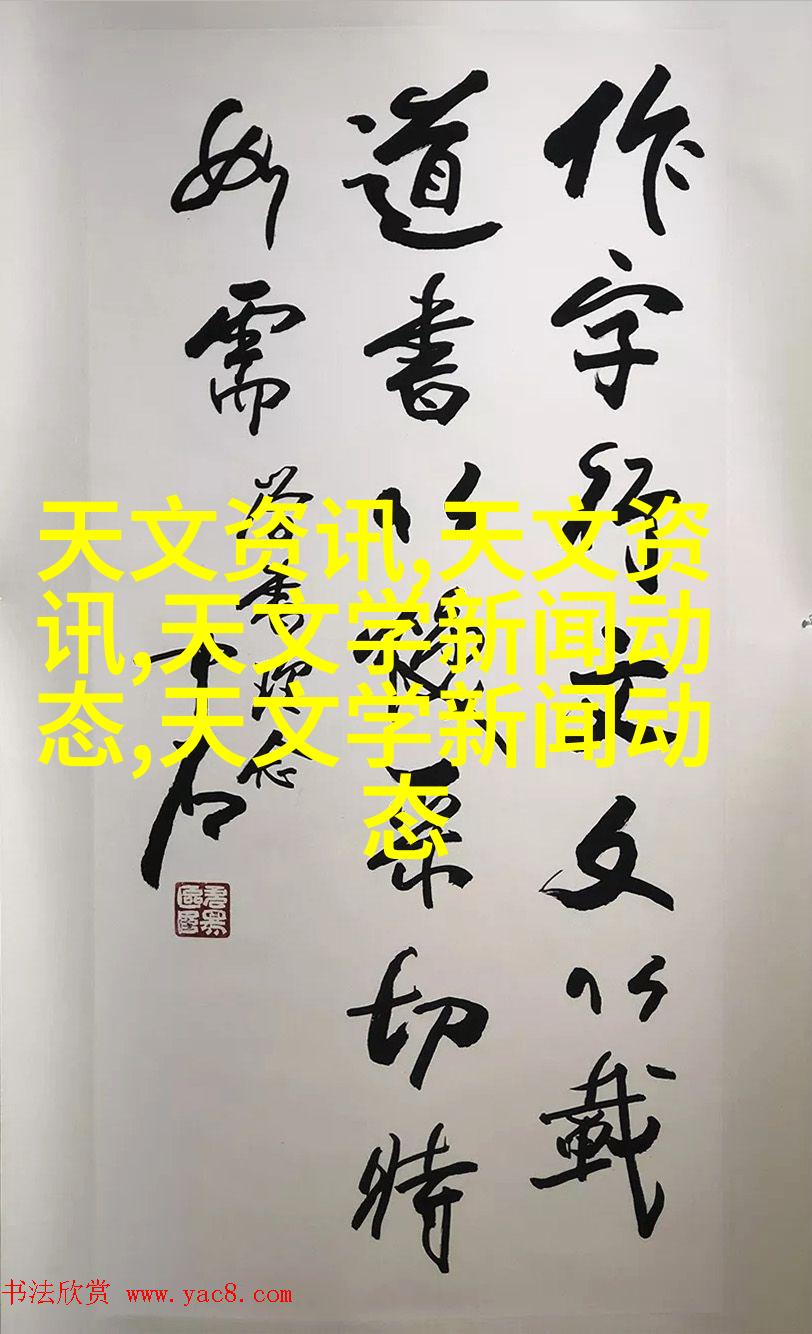 作字行文文以載
道書以切時
如需
天文资讯,天文资
讯,天文学新闻动
态,天文学新闻动
态
书法欣赏 www.yac8.com